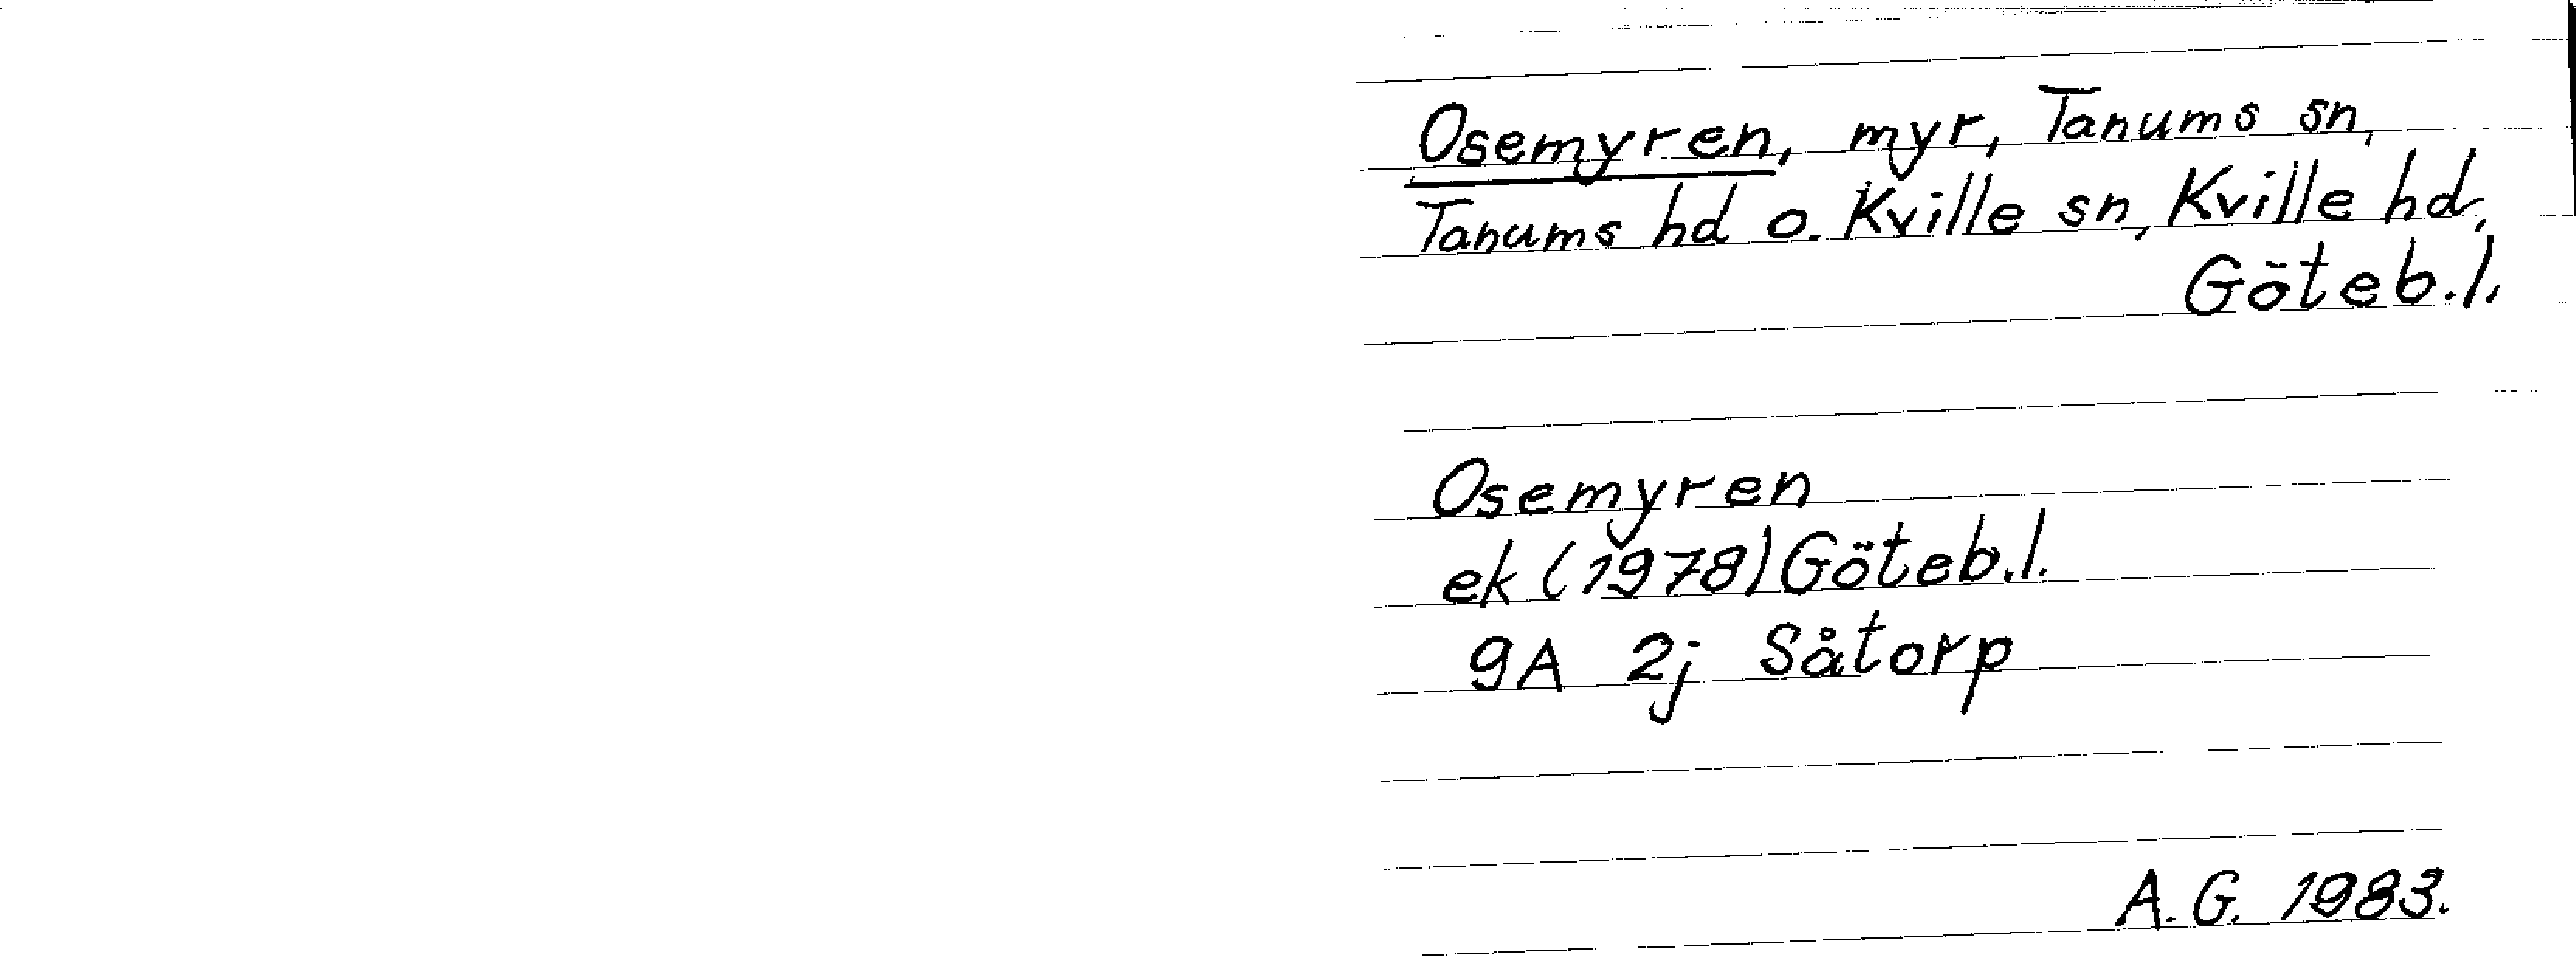 Osemyren, myr, Tanums sn,
Tanums hd o. Kville sn, Kville hd,
Göteb.l.
Osemyren
ek (1978) Göteb.l.
9A 2j Såtorp
A.G. 1983.